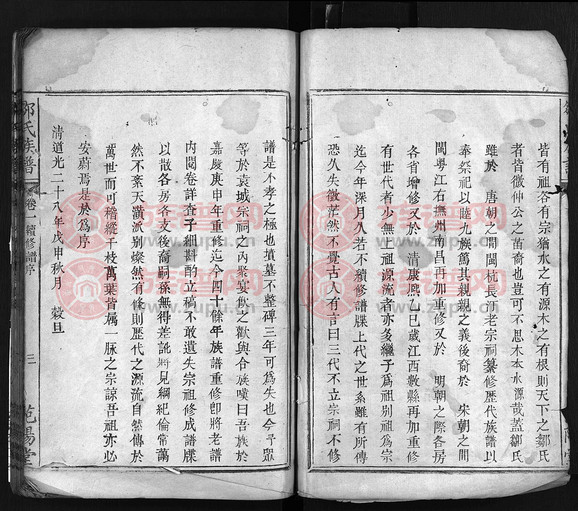 皆有祖各有宗猶水之有源木之有根則天下之鄒氏
者皆徵仲公之苗裔也豈可不思木本水源哉蓋鄒氏
雖於 唐朝之間閩杭長汀老宗祠纂修歷代族譜以
奉祭祀以睦九族篤其親親之義後裔於 宋朝之間
閩粵江右撫州南昌再加重修又於 明朝之際各房
各省增修又於 清康熙乙巳歲江西數縣再加重修
有世代者少無上源流者亦多繼子爲祖別祖爲宗
迄今年深月久若不續修譜牒上代之世系雖有所傳
恐久失徵茫然不覺古人有言曰三代不立宗祠不修
譜是不孝之極也墳墓不整碑三年可爲失也今予眾
等於袁城宗祠之內聚宴飲之歡與合族嘆曰吾族於
嘉慶庚申年重修迄今四十餘年族譜重修即將老譜
內閱卷詳查子細斟酌立稿不敢遺失宗祖修成譜牒
以散各房各支後裔嗣孫無得差訛將見綱紀倫常萬
然不紊天潢派別燦然有條則歷代之源流自然傳於
萬世而可稽縱千枝萬葉皆屬一脉之宗諒吾祖亦必
安蔚焉是於爲序
清道光二十八年戊申秋月 穀旦
鄒氏族譜 卷一 續修譜序 三 乾陽堂